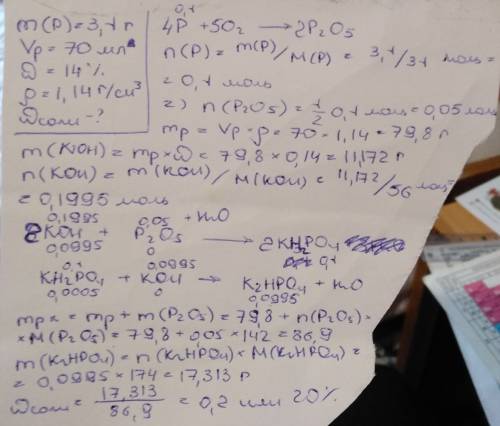 m(P)=3,1 г
Vp = 70 мл
ω = 14%
ρ = 1,14 г/см³
ω соли - ?
0,1
4P + 5O₂ → 2P₂O₅
n(P) = m(P)/M(P) = 3,1/31 моль =
= 0,1 моль
=) n(P₂O₅) = 1/2 0,1 моль = 0,05 моль
mp = Vp · ρ = 70 · 1,14 = 79,8 г
m(KOH) = mp × ω = 79,8 × 0,14 = 11,172 г
n(KOH) = m(KOH) / M(KOH) = 11,172 / 56 моль =
= 0,1995 моль
0,1995 0,05 + H₂O
2KOH + P₂O₅ → 2KH₂PO₄
0,0995 0 0,1
0,1 0,0995
KH₂PO₄ + KOH → K₂HPO₄ + H₂O
0,0005 0 0,0995
mpк = mp + m(P₂O₅) = 79,8 + n(P₂O₅) ×
× M(P₂O₅) = 79,8 + 0,05 × 142 = 86,9
m(K₂HPO₄) = n(K₂HPO₄) × M(K₂HPO₄) =
= 0,0995 × 174 = 17,313 г
ω соли = 17,313 / 86,9 = 0,2 или 20%